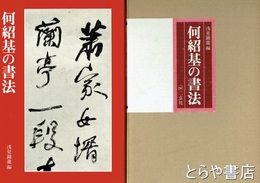 何紹基の書法
浅見錦龍編
蕭家女壻
蘭亭一段
浅見錦龍編
何紹基の書法
とらや書店